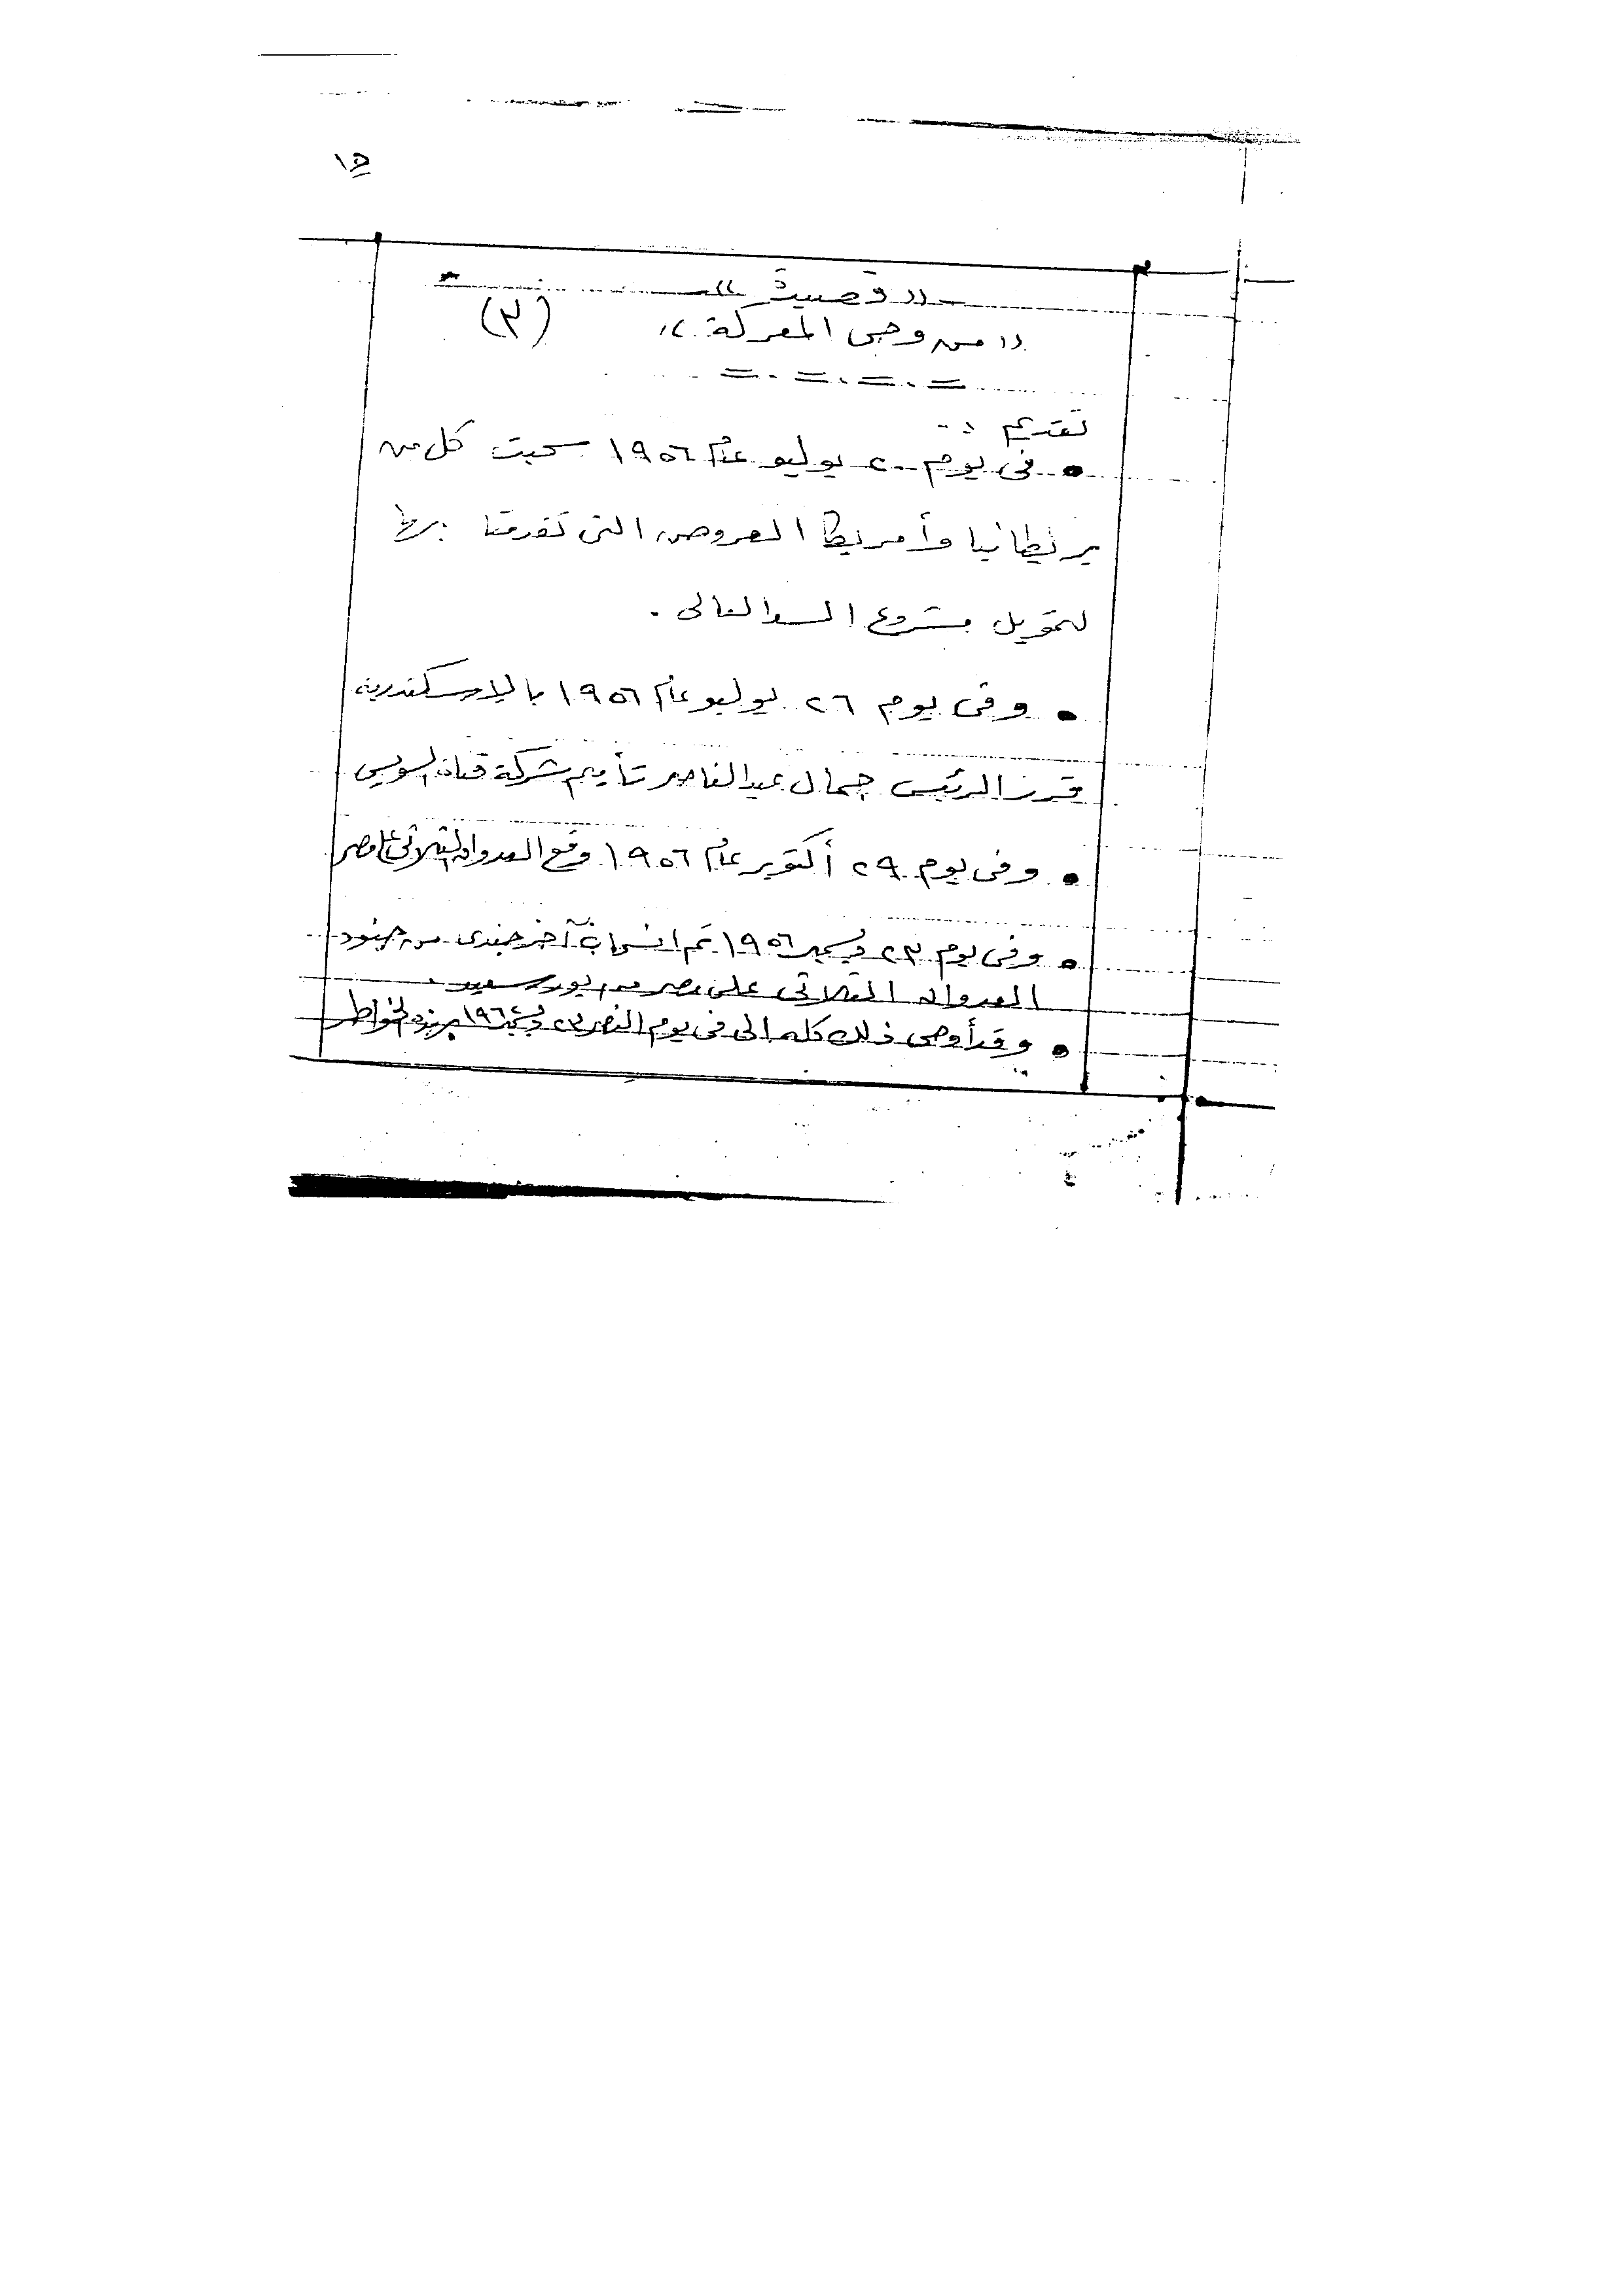 ١٥
" قصيدة "
" من وحى المعركة " (٣)
تقديم :-
• فى يوم ٢٠ يوليو عام ١٩٥٦ سحبت كل من
بريطانيا وأمريكا العروض التى تقدمتا بها
لتمويل مشروع السد العالى .
• وفى يوم ٢٦ يوليو عام ١٩٥٦ بالاسكندرية
قرر الرئيس جمال عبد الناصر تأميم شركة قناة السويس
• وفى يوم ٢٩ أكتوبر عام ١٩٥٦ وقع العدوان الثلاثى على مصر
• وفى يوم ٢٣ ديسمبر ١٩٥٦ تم انسحاب آخر جندى من جنود
العدوان الثلاثى على مصر من بور سعيد .
• وقد أوحى ذلك كله الى فى يوم النصر ٢٣ ديسمبر بهذه الخواطر